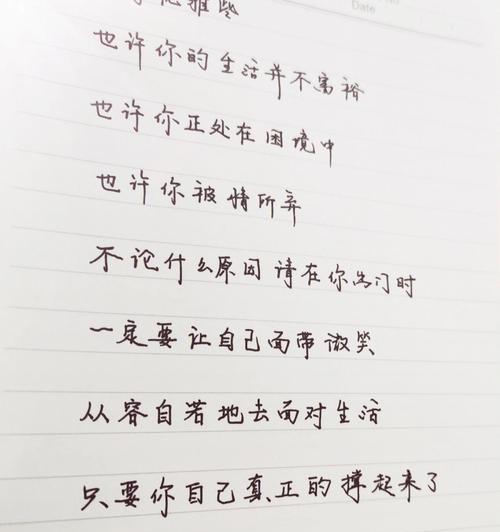 Date
也许你的生活并不富裕
也许你正处在困境中
也许你被情所弃
不论什么原因请在你出门时
一定要让自己面带微笑
从容自若地去面对生活
只要你自己真正的撑起来了